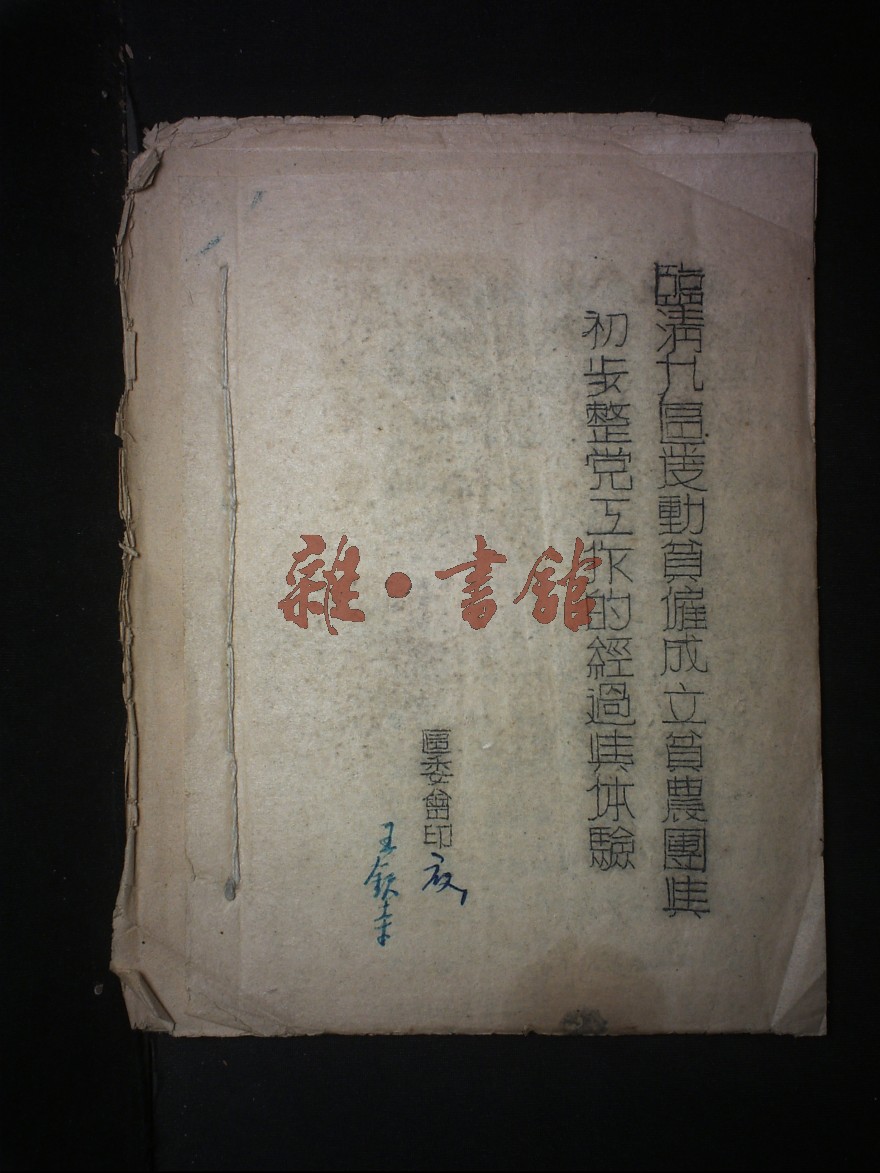 臨清九區发動貧僱成立貧農團與
初步整党工作的經過與体驗
區委會印
雜·書館